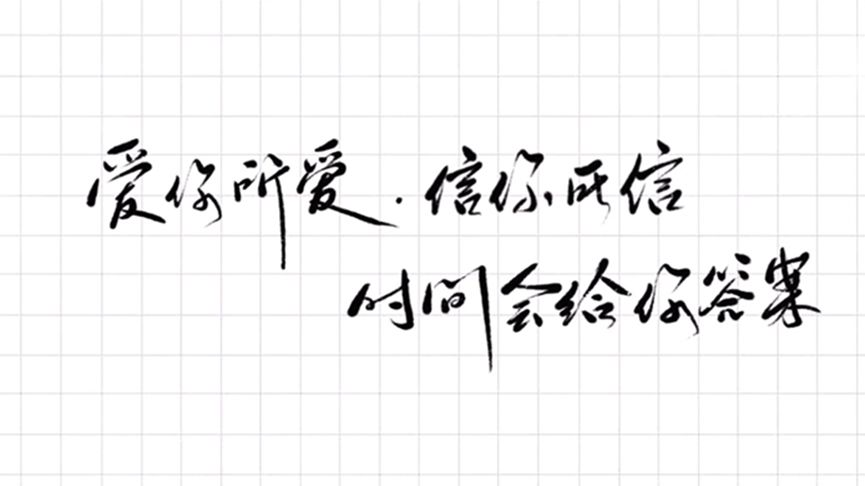 爱你所爱.信你所信
时间会给你答案